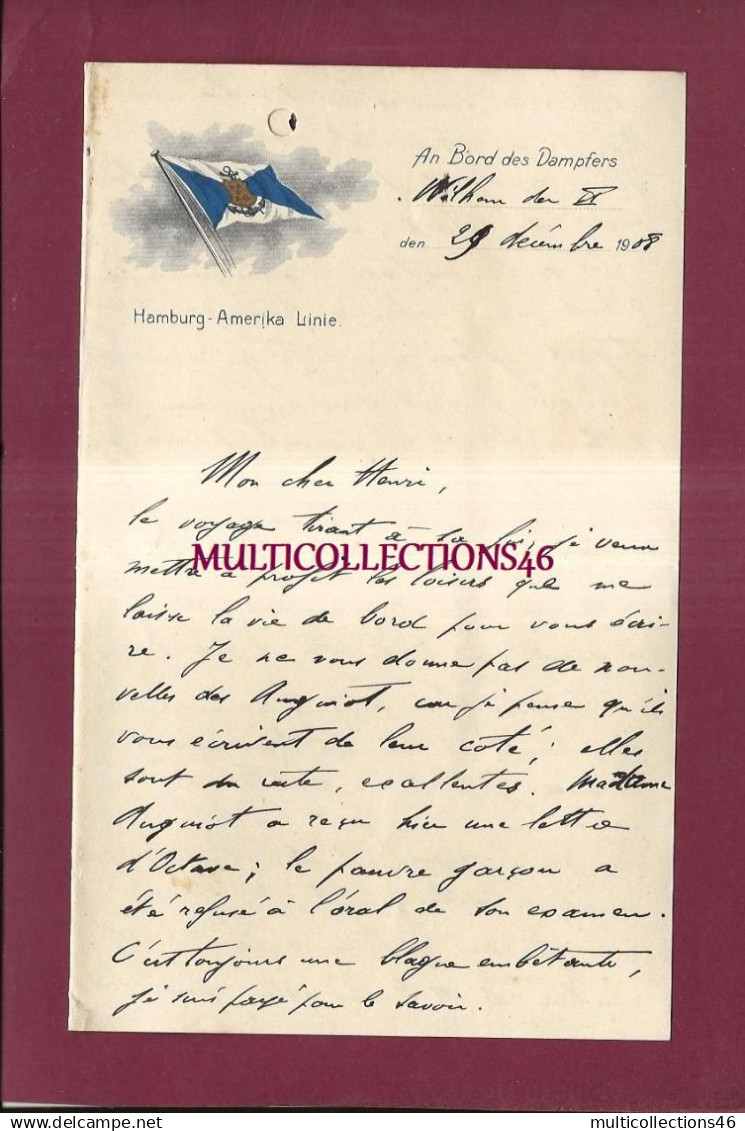 An Bord des Dampfers
den 29 décembre 1908
Hamburg-Amerika Linie.
Mon cher Henri,
le voyage tirant à sa fin, je veux
MULTICOLLECTIONS46
mettre à profit les loisirs que me
laisse la vie de bord pour vous écri-
re. Je ne vous donne pas de nou-
velles des Anquiot, car je pense qu'ils
vous écrivent de leur coté; elles
sont du reste, excellentes. Madame
Anquiot a reçu hier une lettre
d'Octave; le pauvre garçon a
été refusé à l'oral de son examen.
C'est toujours une blague embêtante,
je suis payé pour le savoir.
Delcampe.net
multicollections46